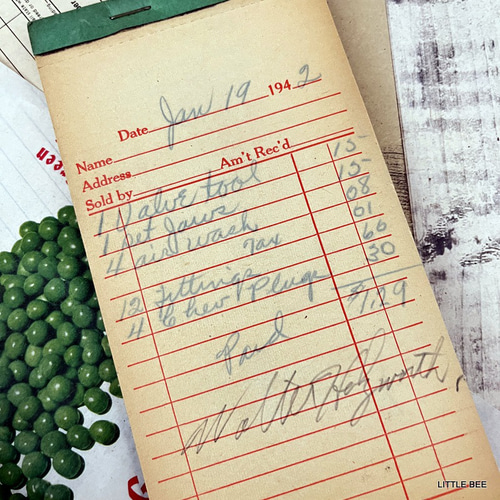 Date Jan 19 1942
Name
Address
Sold by Am't Rec'd
1 Valve tool 15-
1 set Jaws 15-
4 air wash 08
Tax 01
12 Fittings 60
4 Chev Plugs 30
$1.29
Paid
Walter
LITTLE BEE